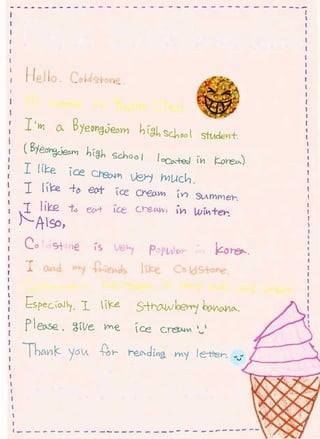 Hello. Coldstone.
I'm a Byeongjeom high school student.
(Byeongjeom high school located in Korea)
I like ice cream very much.
I like to eat ice cream in summer.
I like to eat ice cream in winter.
Also,
Coldstone is very popular in korea.
I and my friends like Coldstone.
Especially, I like strawberry banana.
Please. give me ice cream
Thank you for reading my letter.